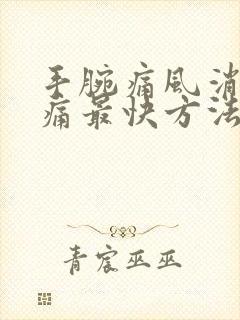 手腕痛風消
痛最快方法
青宸巫巫